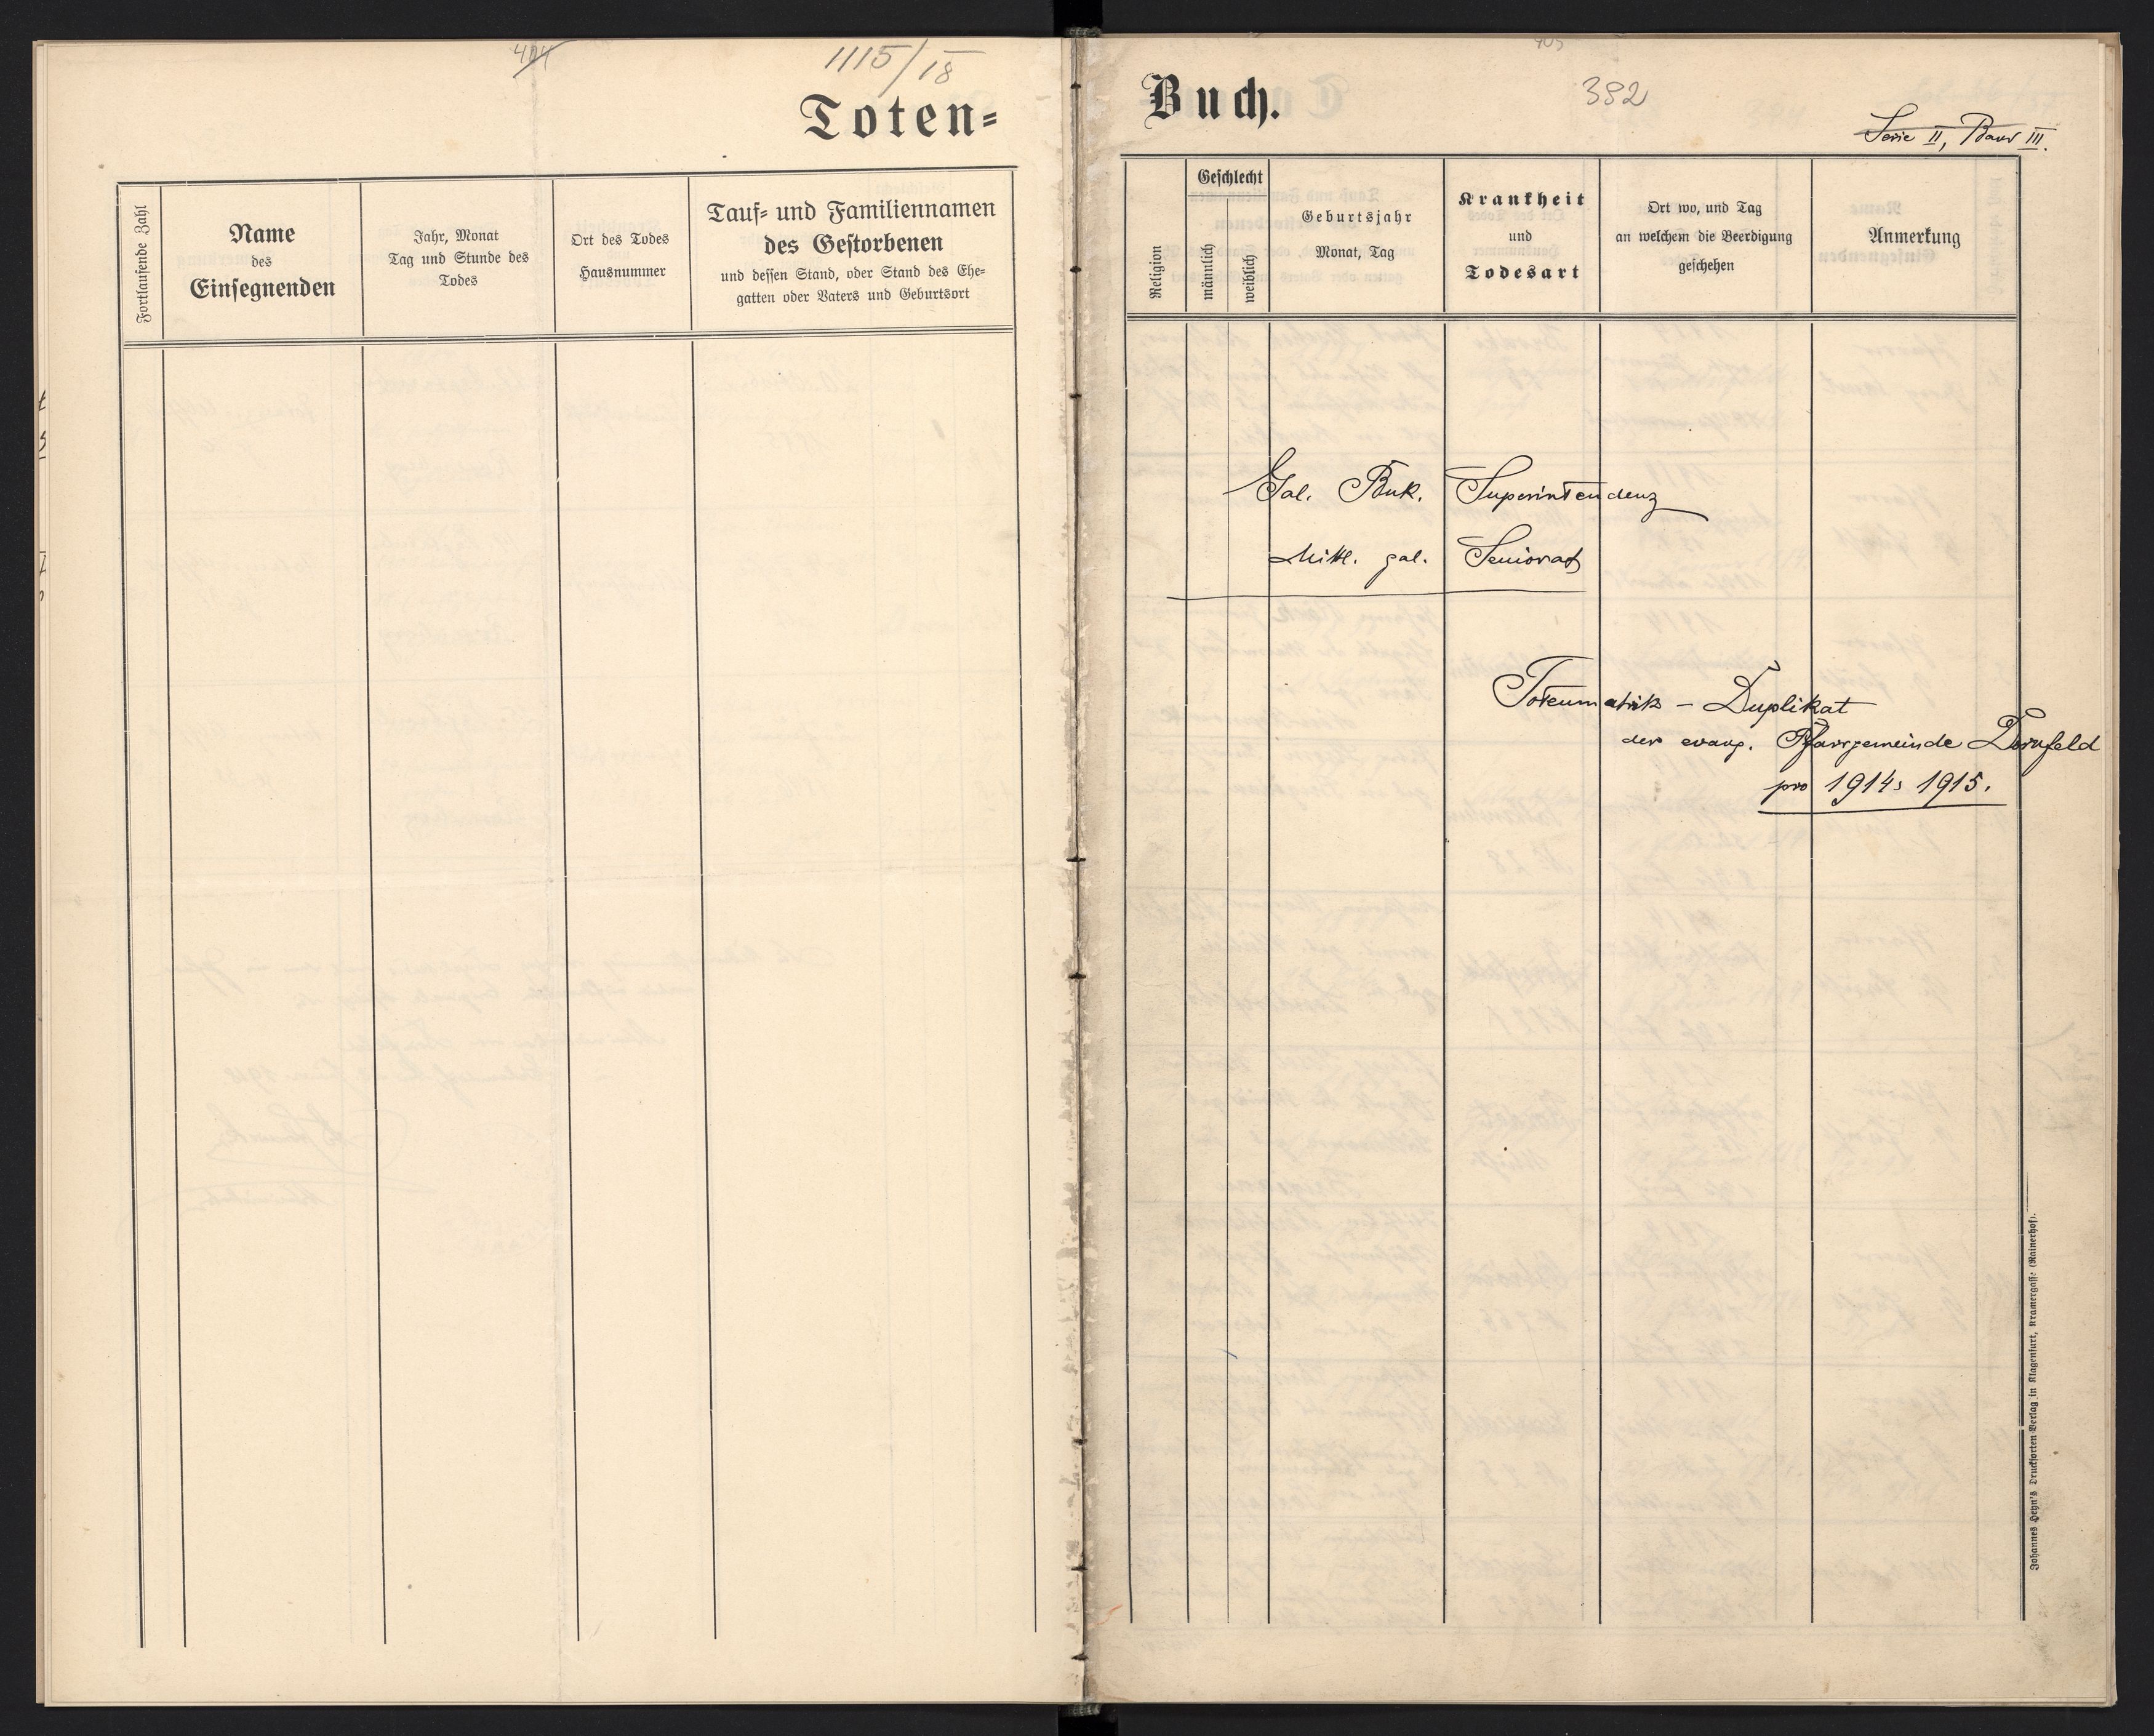 404
1115/18
Toten-
Fortlaufende Zahl
Name
des
Einsegnenden
Jahr, Monat
Tag und Stunde des
Todes
Ort des Todes
Hausnummer
Tauf- und Familiennamen
des Gestorbenen
und dessen Stand, oder Stand des Ehe-
gatten oder Vaters und Geburtsort
405
382
Buch.
Serie II, Band III.
Religion
Geschlecht
männlich
weiblich
Geburtsjahr
Monat, Tag
Krankheit
und
Todesart
Ort wo, und Tag
an welchem die Beerdigung
geschehen
Anmerkung
Gal. Buk. Superintendenz
Mittl. gal. Seniorat
Totenmatrik - Duplikat
der evang. Pfarrgemeinde Dornfeld
pro 1914 1915.
Johannes Heyn's Drucksorten-Verlag in Klagenfurt, Kramergasse (Rainerhof).